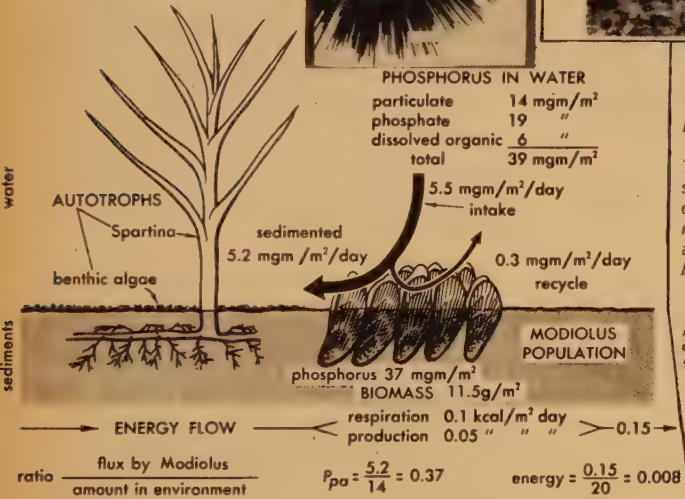 PHOSPHORUS IN WATER
particulate 14 mgm/m²
phosphate 19 "
dissolved organic 6 "
total 39 mgm/m²
water
AUTOTROPHS
Spartina
benthic algae
sedimented
5.2 mgm /m²/day
5.5 mgm/m²/day
intake
0.3 mgm/m²/day
recycle
sediments
MODIOLUS
POPULATION
phosphorus 37 mgm/m²
BIOMASS 11.5g/m²
ENERGY FLOW
respiration 0.1 kcal/m² day
production 0.05 " " "
0.15
ratio flux by Modiolus
amount in environment
Ppa = 5.2/14 = 0.37
energy = 0.15/20 = 0.008